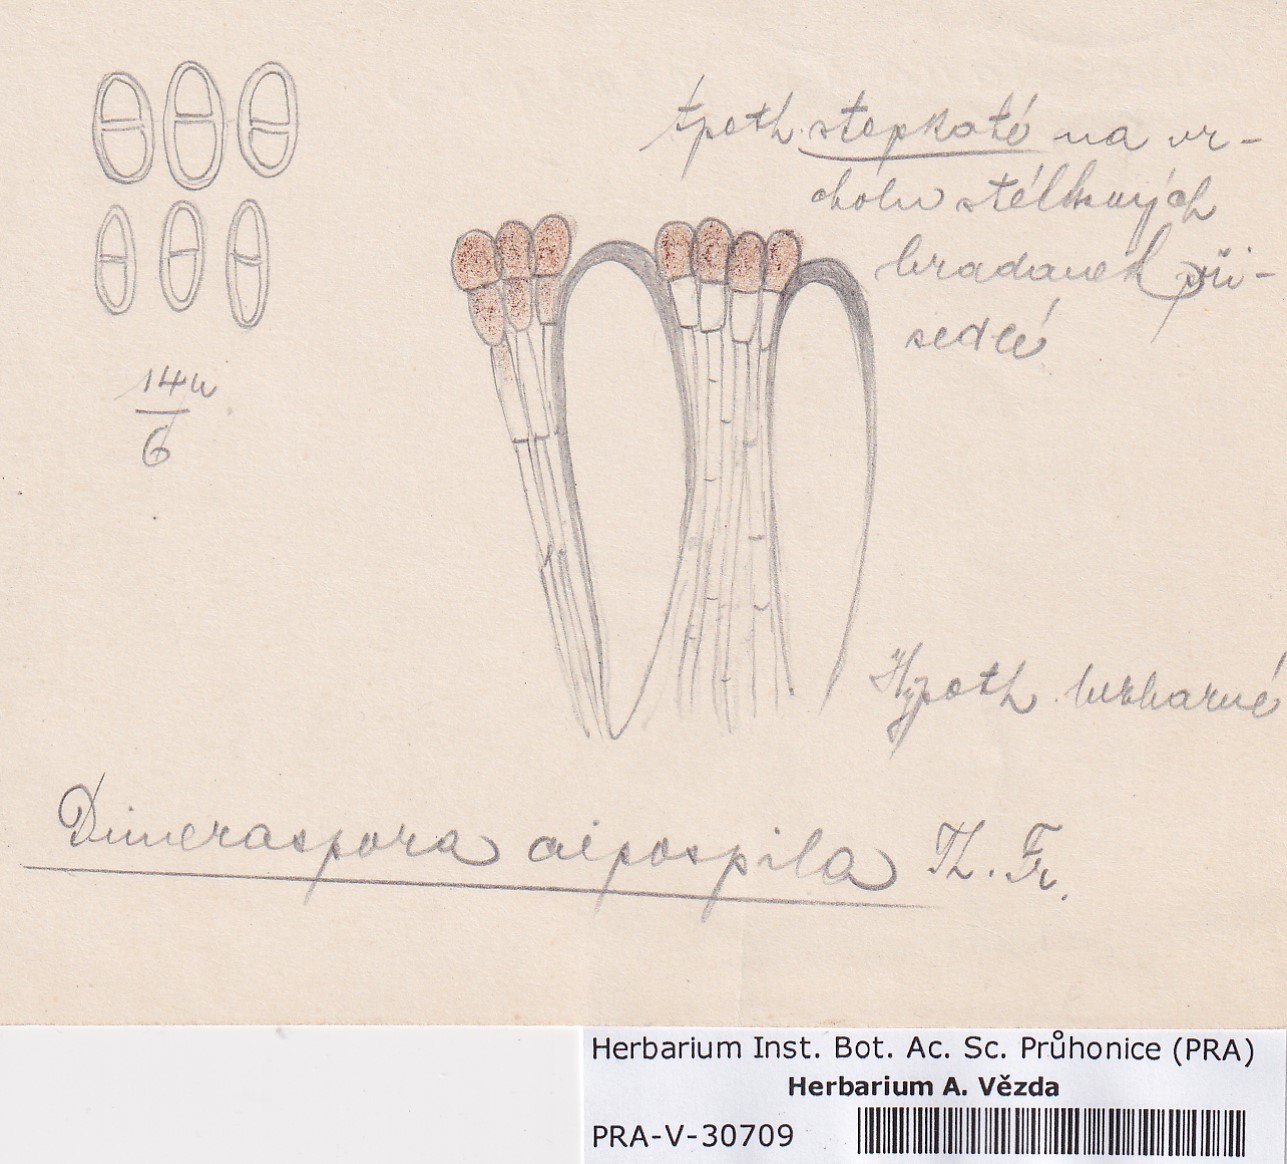 Apoth. stopkaté na vr-
cholu stélkových
bradavek při-
sedlé
14 u
6
Hypoth. bezbarvé
Dimeraspora aipospila Th. Fr.
Herbarium Inst. Bot. Ac. Sc. Průhonice (PRA)
Herbarium A. Vězda
PRA-V-30709